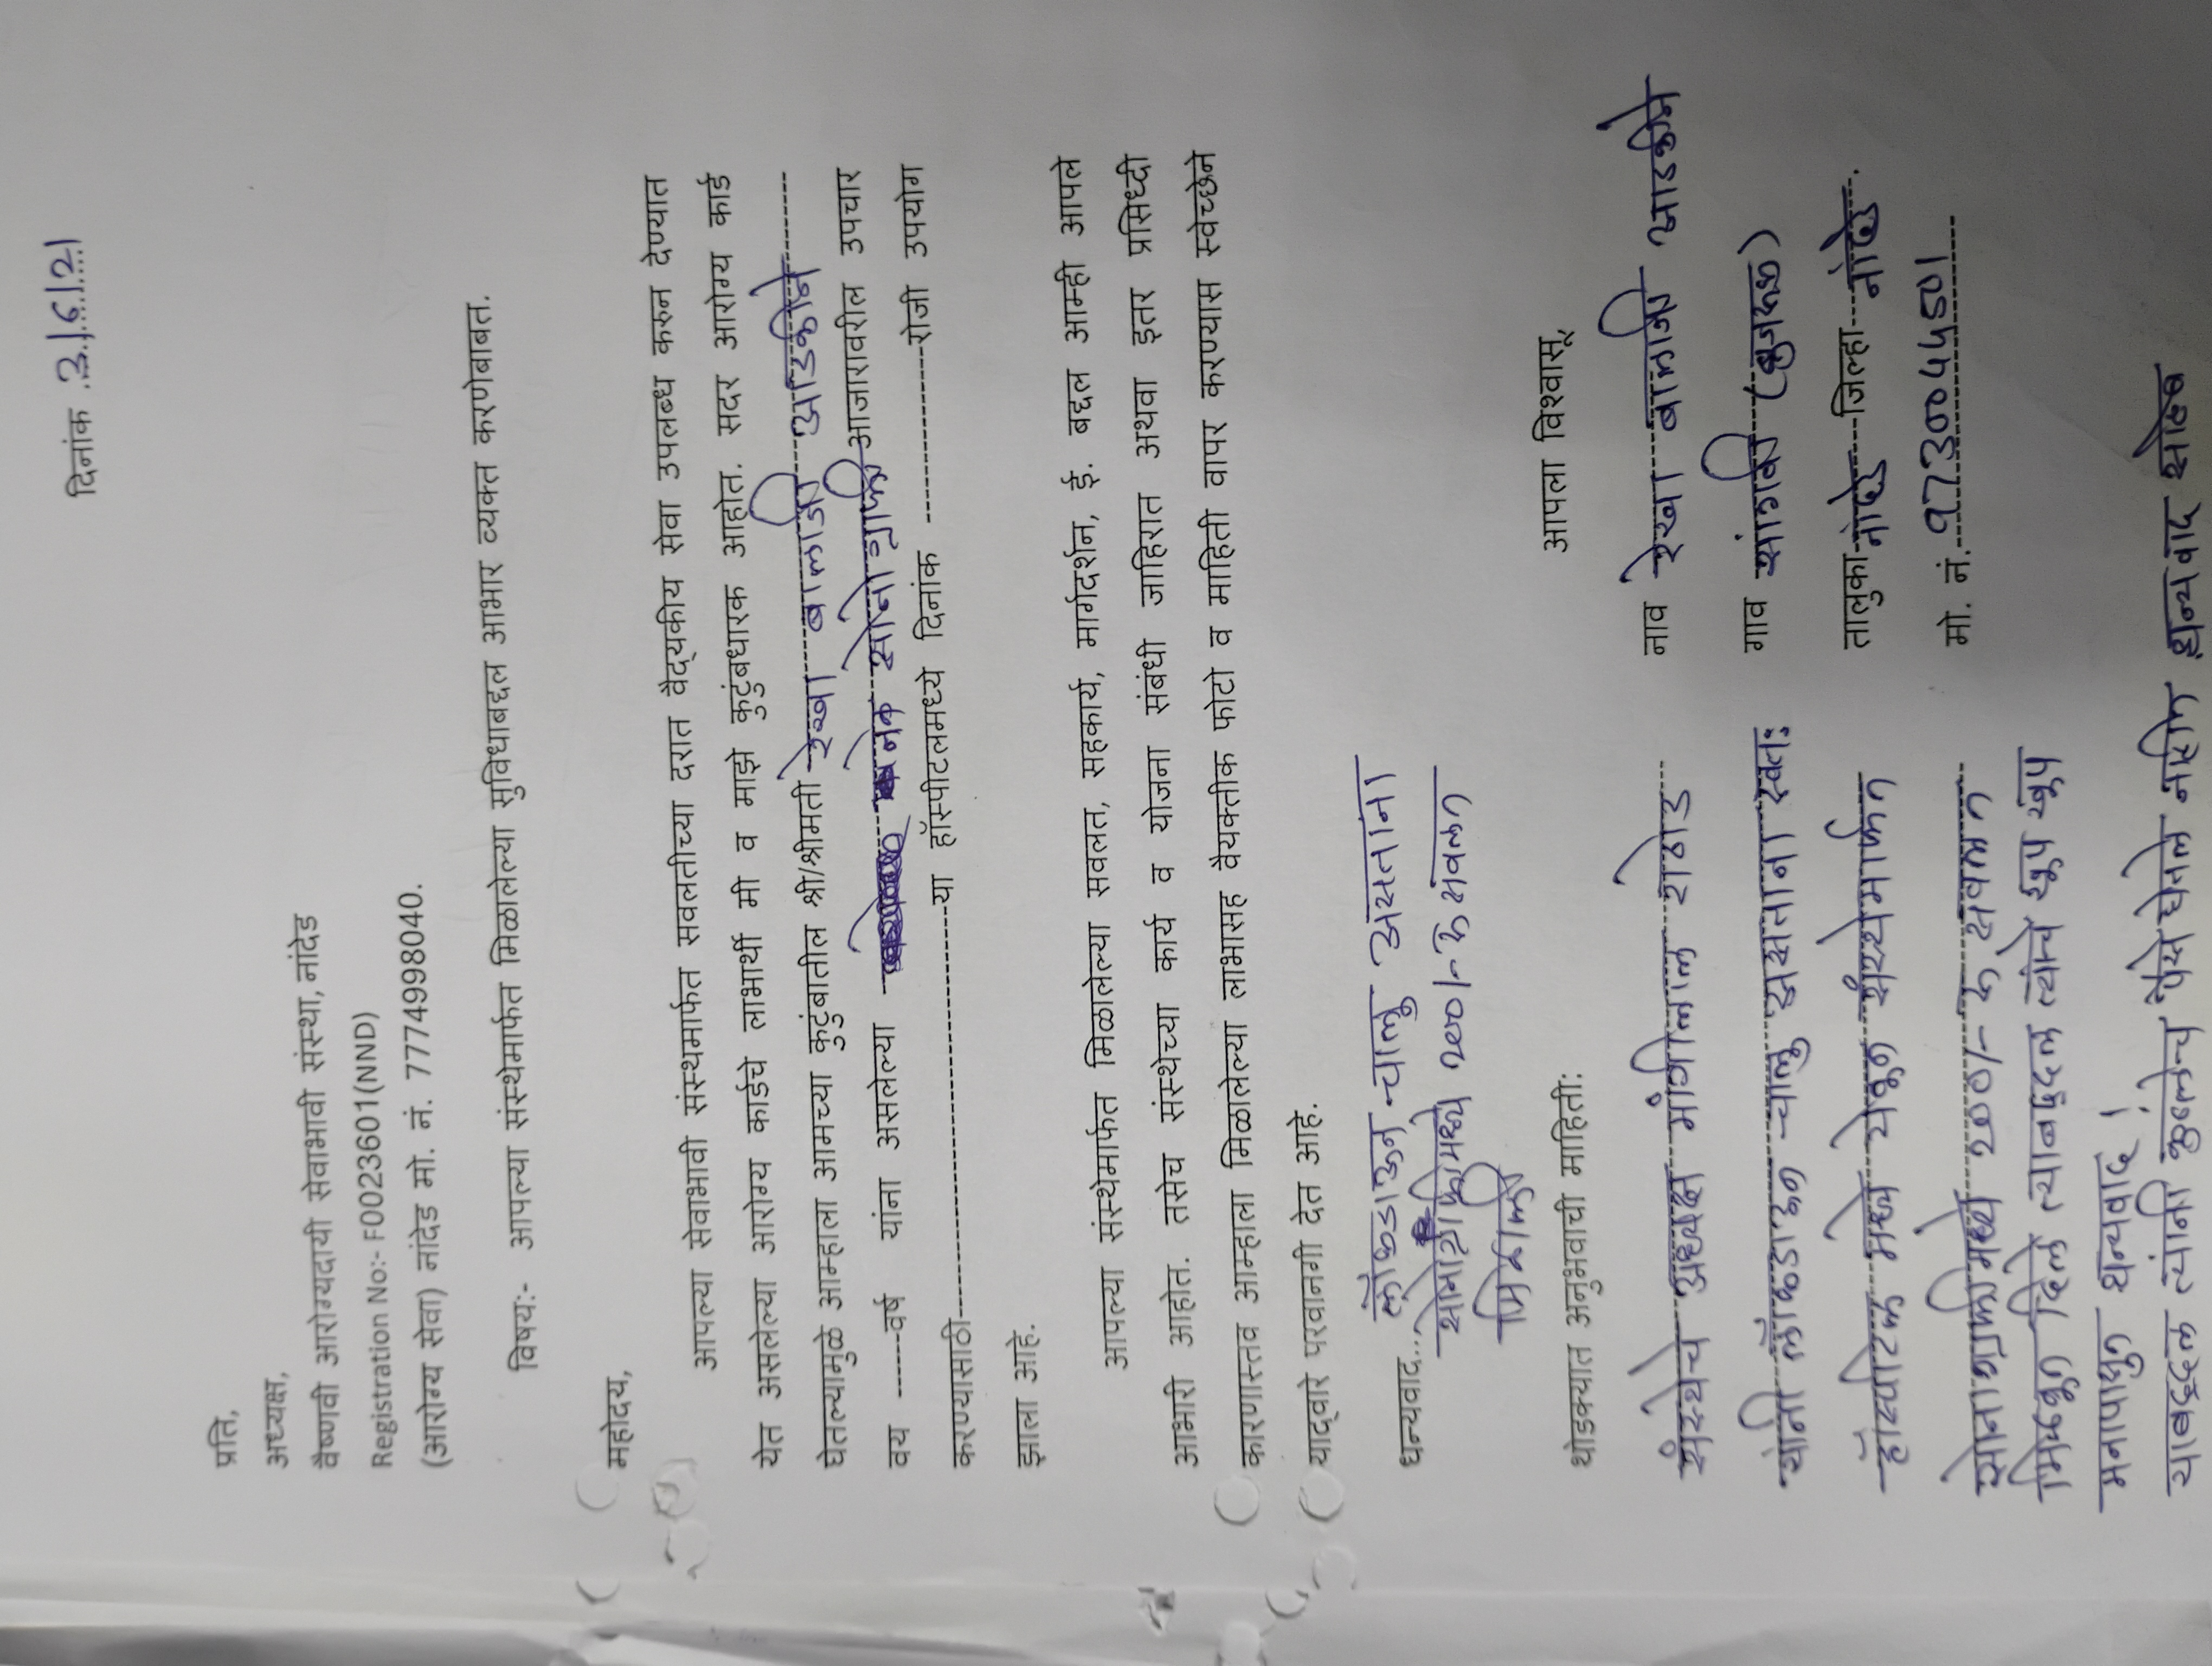 दिनांक 3/6/21
प्रति,
अध्यक्ष,
वैष्णवी आरोग्यदायी सेवाभावी संस्था, नांदेड
Registration No:- F0023601(NND)
(आरोग्य सेवा) नांदेड मो. नं. 7774998040.
विषय:- आपल्या संस्थेमार्फत मिळालेल्या सुविधाबद्दल आभार व्यक्त करणेबाबत.
महोदय,
आपल्या सेवाभावी संस्थेमार्फत सवलतीच्या दरात वैद्यकीय सेवा उपलब्ध करुन देण्यात
येत असलेल्या आरोग्य कार्डचे लाभार्थी मी व माझे कुटुंबधारक आहोत. सदर आरोग्य कार्ड
घेतल्यामुळे आम्हाला आमच्या कुटुंबातील श्री/श्रीमती रेखा बालाजी आडकीने
वय ------वर्ष यांना असलेल्या सोनोग्राफी आजारावरील उपचार
करण्यासाठी------------------------या हॉस्पीटलमध्ये दिनांक --------------रोजी उपयोग
झाला आहे.
आपल्या संस्थेमार्फत मिळालेल्या सवलत, सहकार्य, मार्गदर्शन, ई. बद्दल आम्ही आपले
आभारी आहोत. तसेच संस्थेच्या कार्य व योजना संबंधी जाहिरात अथवा इतर प्रसिध्दी
कारणास्तव आम्हाला मिळालेल्या लाभासह वैयक्तीक फोटो व माहिती वापर करण्यास स्वेच्छेने
याद्वारे परवानगी देत आहे.
धन्यवाद... लॉकडाऊन चालु असताना
सोनोग्राफीमध्ये 200/- रु सवलत
मिळाली
आपला विश्वासू
थोडक्यात अनुभवाची माहिती:
नाव रेखा बालाजी आडकीने
गाव सांगवी (बुजरुक)
तालुका नांदेड जिल्हा नांदेड.
मो. नं. 9730044501
संस्थेचे अध्यक्ष मांगीलाल राठोड
यांनी लॉकडाऊन चालु असताना स्वत:
हॉस्पीटल मध्ये येवुन संस्थेमार्फत
सोनाग्राफीमध्ये 200/- रु सवलत
मिळवुन दिले त्याबद्दल त्यांचे खुप खुप
मनापासुन धन्यवाद!
याबद्दल त्यांनी कुठलेच पैसे घेतले नाहीत धन्यवाद साहेब